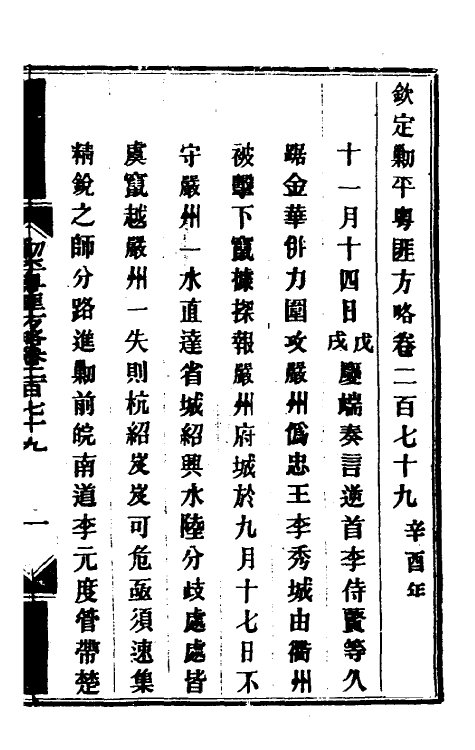 欽定勦平粵匪方略卷二百七十九 辛酉年
十一月十四日戊戌慶端奏言逆首李侍賢等久
踞金華併力圍攻嚴州僞忠王李秀城由衢州
被擊下竄據探報嚴州府城於九月十七日不
守嚴州一水直達省城紹興水陸分歧處處皆
虞竄越嚴州一失則杭紹岌岌可危亟須速集
精銳之師分路進勦前皖南道李元度管帶楚
勦平粵匪方略卷二百七十九
一